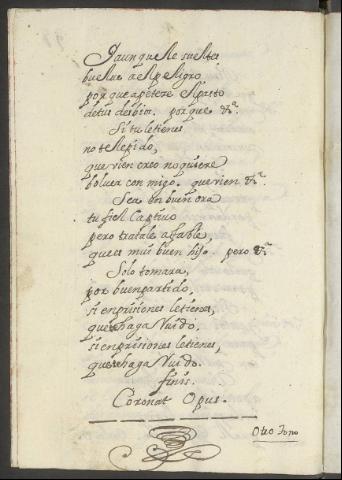 Y aunque le sueltes
buelue a el peligro
porque apeteze el pasto
de tus desbios. porque &r.ª
Si tu le tienes
no te le pido,
que vien creo no quiere
bolver con migo. que vien &r.ª
Sea en buen ora
tu fiel Captivo
pero tratale afable,
que es mui buen hijo. pero &r.ª
Solo tomara,
por buen partido,
si en prisiones le tienes,
que te haga Ruido.
si en prisiones le tienes,
que te haga Ruido.
finis.
Coronat Opus.
Otro Tono